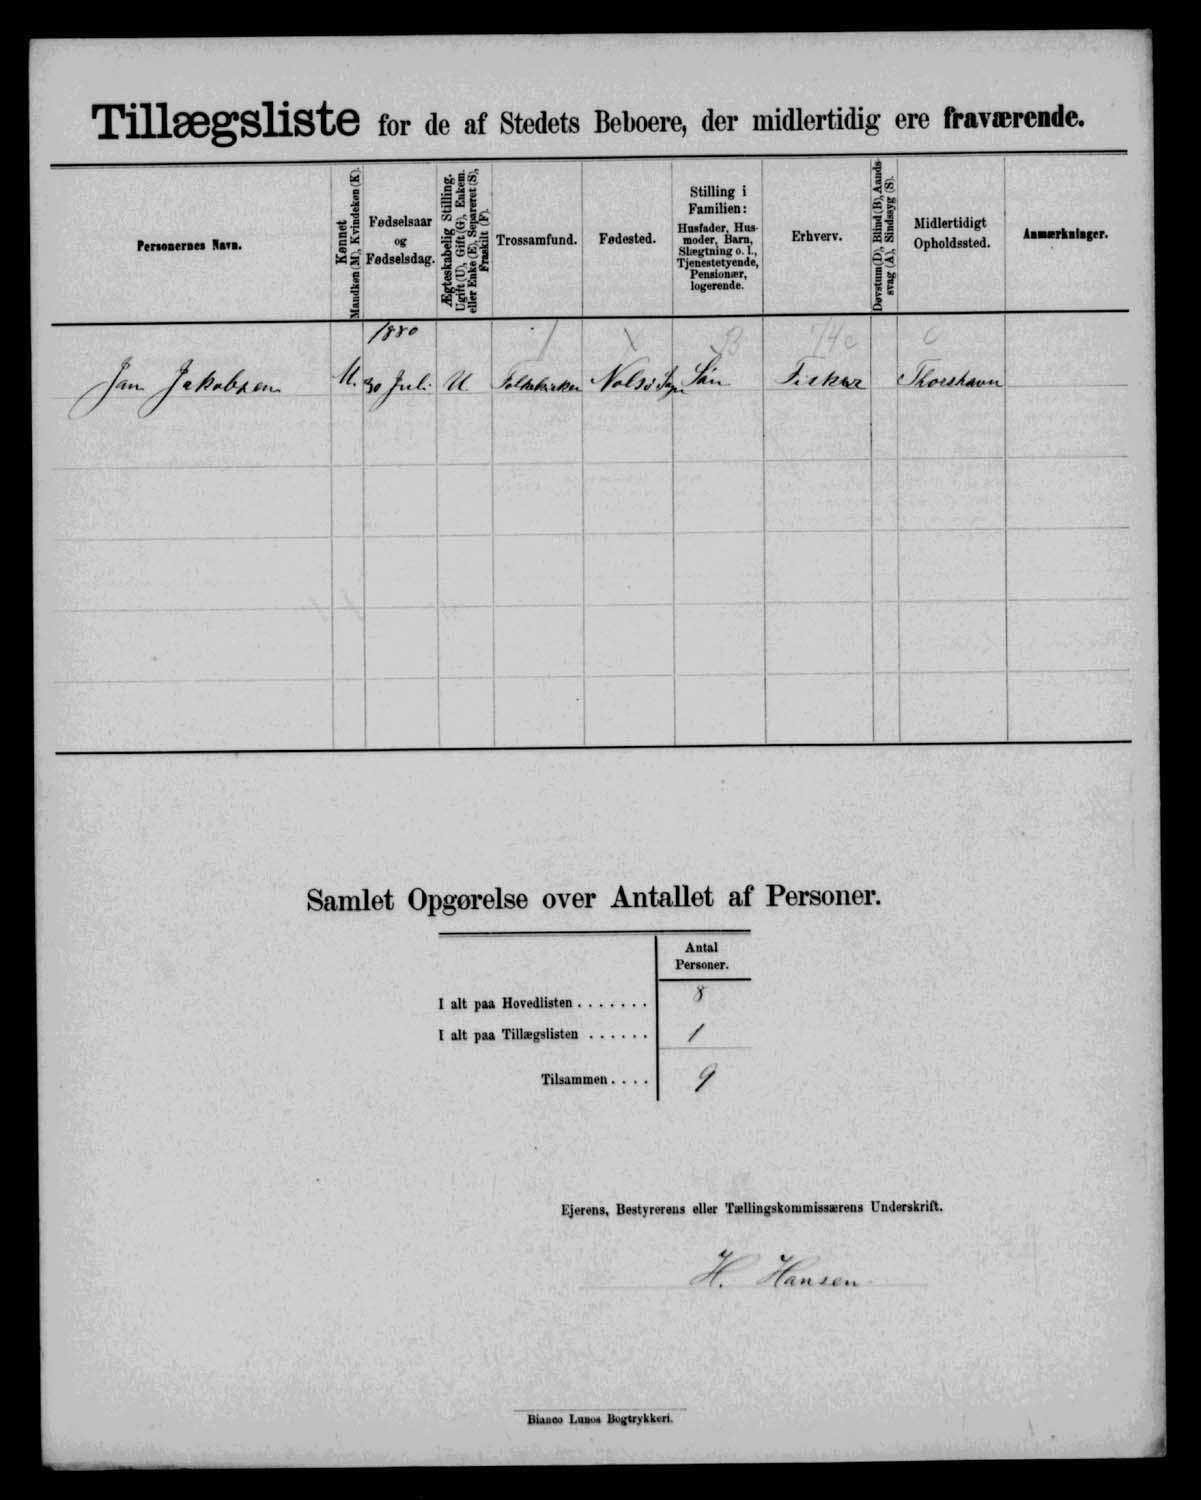 Tillægsliste for de af Stedets Beboere, der midlertidig ere fraværende.
Personernes Navn.
Kønnet
Mandkøn (M), Kvindekøn (K).
Fødselsaar
og
Fødselsdag.
Ægteskabelig Stilling.
Ugift (U), Gift (G), Enkem.
eller Enke (E), Separeret (S),
Fraskilt (F).
Trossamfund.
Fødested.
Stilling i
Familien:
Husfader, Hus-
moder, Barn,
Slægtning o. l.,
Tjenestetyende,
Pensionær,
logerende.
Erhverv.
Døvstum (D), Blind (B), Aands-
svag (A), Sindssyg (S).
Midlertidigt
Opholdssted.
Anmærkninger.
1880
Jan Jakobsen M. 30 Juli U Folkekirken Nolsø Søn Fisker Thorshavn
Samlet Opgørelse over Antallet af Personer.
Antal
Personer.
I alt paa Hovedlisten ....... 8
I alt paa Tillægslisten ...... 1
Tilsammen .... 9
Ejerens, Bestyrerens eller Tællingskommissærens Underskrift.
H. Hansen
Bianco Lunos Bogtrykkeri.